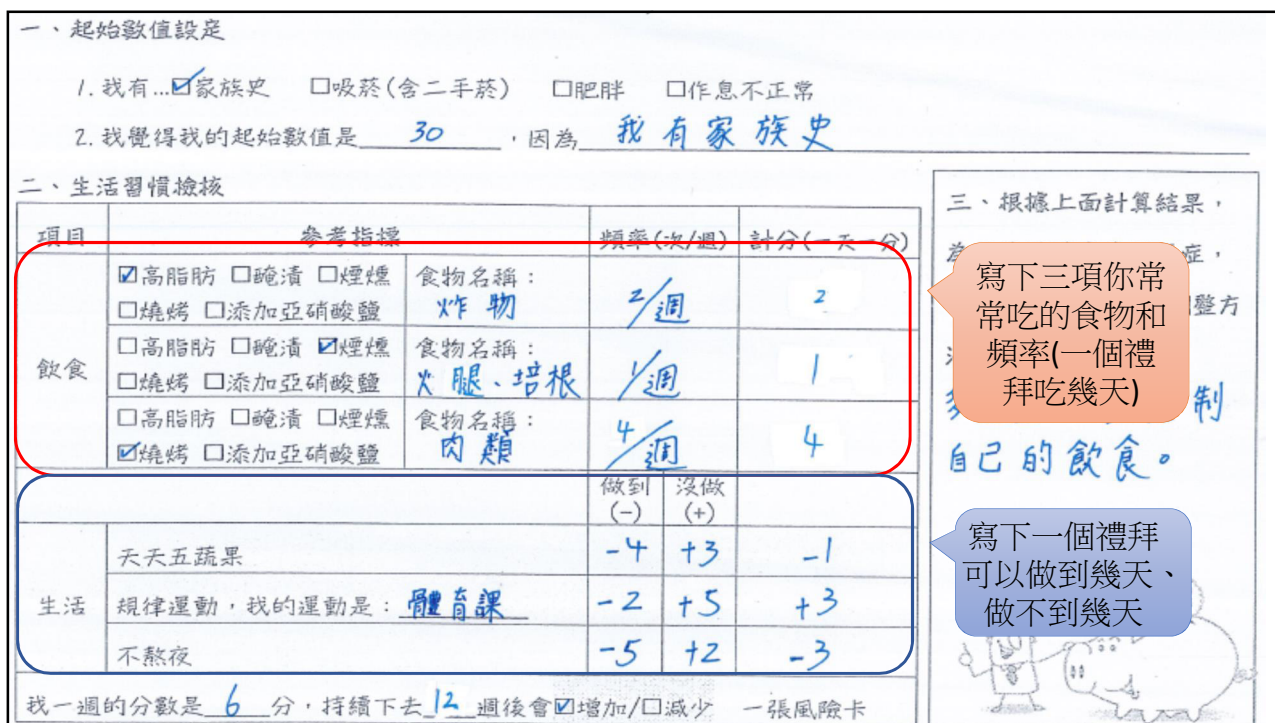 一、起始數值設定
1. 我有…☑家族史 □吸菸(含二手菸) □肥胖 □作息不正常
2. 我覺得我的起始數值是 30 ,因為 我有家族史
二、生活習慣檢核
項目 參考指標 頻率(次/週) 計分(一天一分)
飲食
☑高脂肪 □醃漬 □煙燻 食物名稱:
□燒烤 □添加亞硝酸鹽 炸物 2/週 2
□高脂肪 □醃漬 ☑煙燻 食物名稱:
□燒烤 □添加亞硝酸鹽 火腿、培根 1/週 1
□高脂肪 □醃漬 □煙燻 食物名稱:
☑燒烤 □添加亞硝酸鹽 肉類 4/週 4
做到(-) 沒做(+)
生活
天天五蔬果 -4 +3 -1
規律運動,我的運動是: 體育課 -2 +5 +3
不熬夜 -5 +2 -3
我一週的分數是 6 分,持續下去 12 週後會☑增加/□減少 一張風險卡
三、根據上面計算結果,
症,
整方
制
自己的飲食。
寫下三項你常
常吃的食物和
頻率(一個禮
拜吃幾天)
寫下一個禮拜
可以做到幾天、
做不到幾天